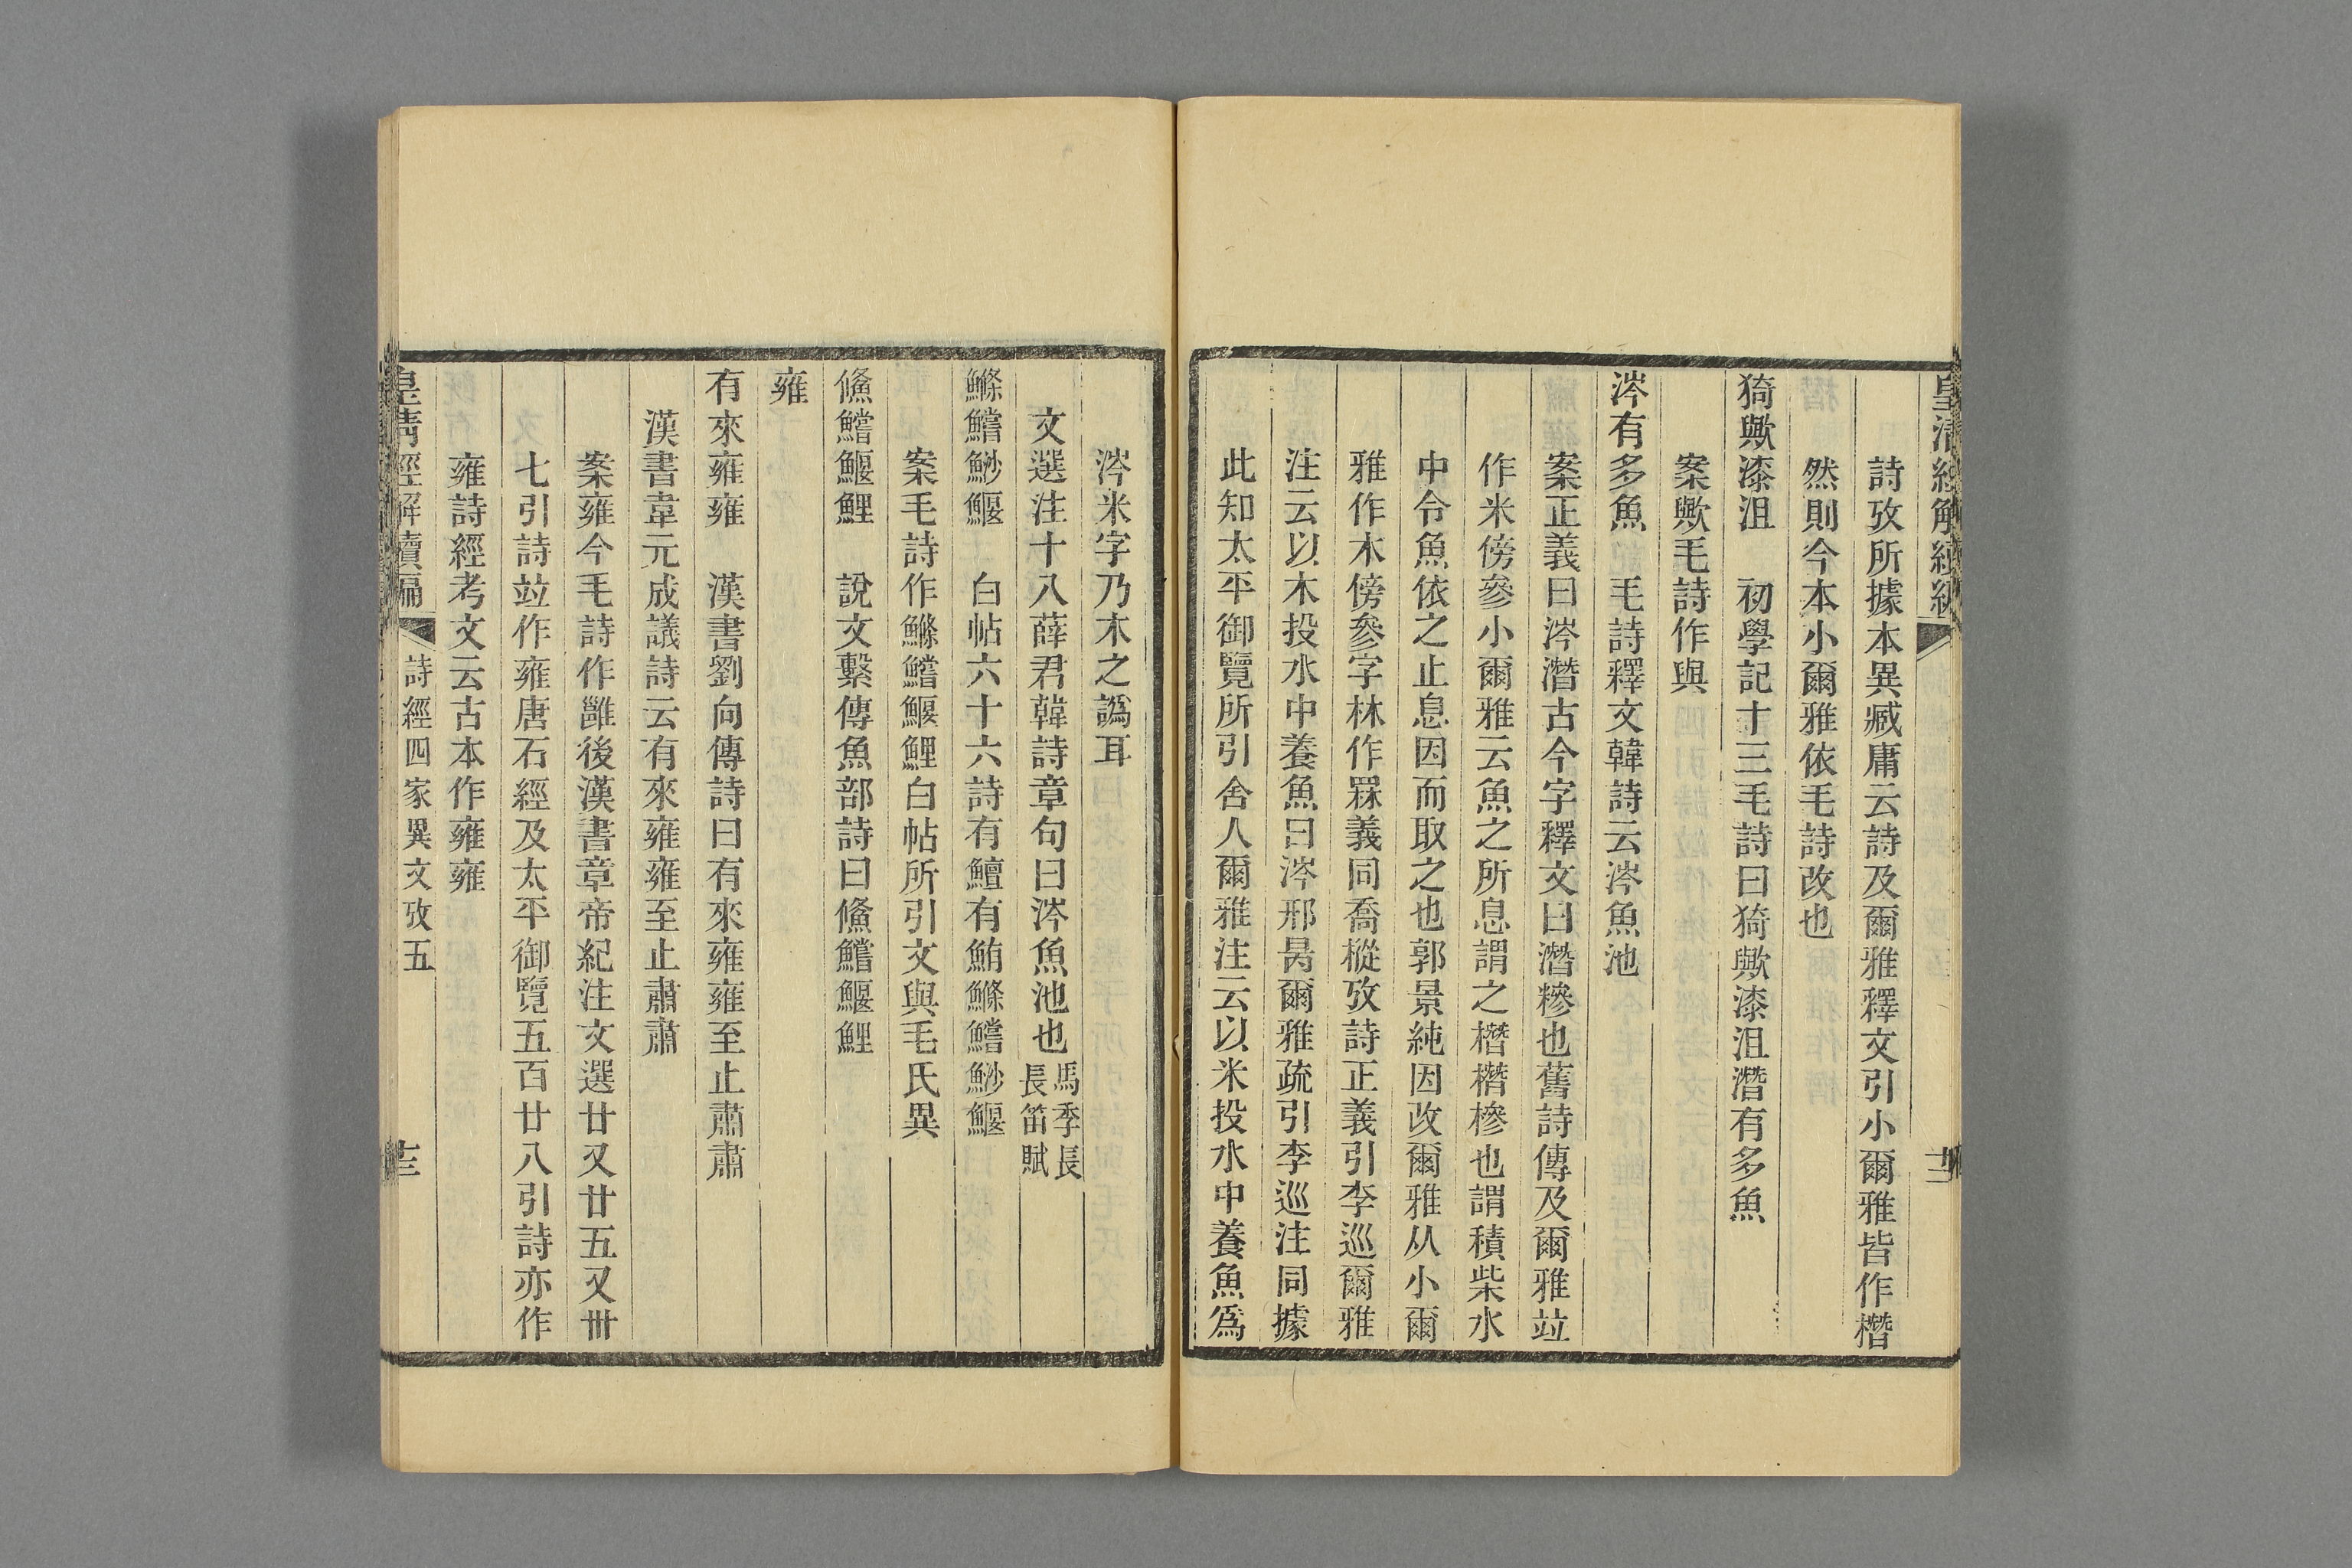 皇清經解續編
詩攷所據本異臧庸云詩及爾雅釋文引小爾雅皆作橬
然則今本小爾雅依毛詩改也
猗歟漆沮　初學記十三毛詩曰猗歟漆沮潛有多魚
案歟毛詩作與
涔有多魚　毛詩釋文韓詩云涔魚池
案正義曰涔潛古今字釋文曰潛糝也舊詩傳及爾雅竝
作米傍參小爾雅云魚之所息謂之橬橬槮也謂積柴水
中令魚依之止息因而取之也郭景純因改爾雅从小爾
雅作木傍參字林作罧義同喬樅攷詩正義引李巡爾雅
注云以木投水中養魚曰涔邢昺爾雅疏引李巡注同據
此知太平御覽所引舍人爾雅注云以米投水中養魚爲
涔米字乃木之譌耳
文選注十八薛君韓詩章句曰涔魚池也馬季長
長笛賦
鰷鱨魦鰋　白帖六十六詩有鱣有鮪鰷鱨魦鰋
案毛詩作鰷鱨鰋鯉白帖所引文與毛氏異
鯈鱨鰋鯉　說文繫傳魚部詩曰鯈鱨鰋鯉
雍
有來雍雍　漢書劉向傳詩曰有來雍雍至止肅肅
漢書韋元成議詩云有來雍雍至止肅肅
案雍今毛詩作雝後漢書章帝紀注文選廿又廿五又卅
七引詩竝作雍唐石經及太平御覽五百廿八引詩亦作
雍詩經考文云古本作雍雍
皇清經解續編　詩經四家異文攷五　十三